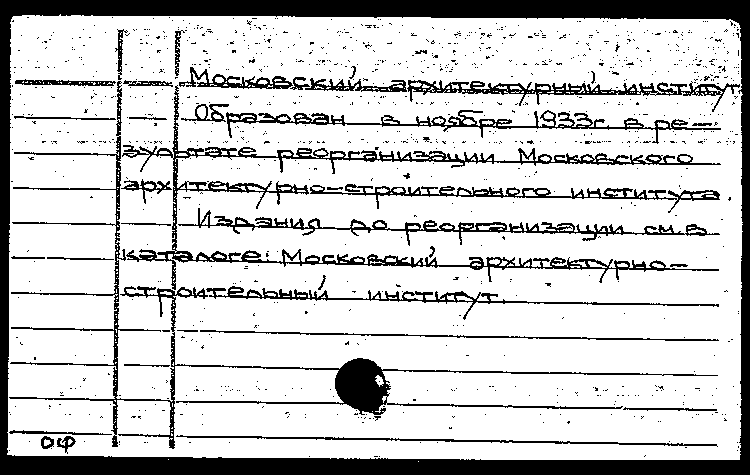 Московский архитектурный институт
Образован в ноябре 1933г. в ре-
зультате реорганизации Московского
архитектурно-строительного института.
Издания до реорганизации см. в
каталоге: Московский архитектурно-
строительный институт.
оф